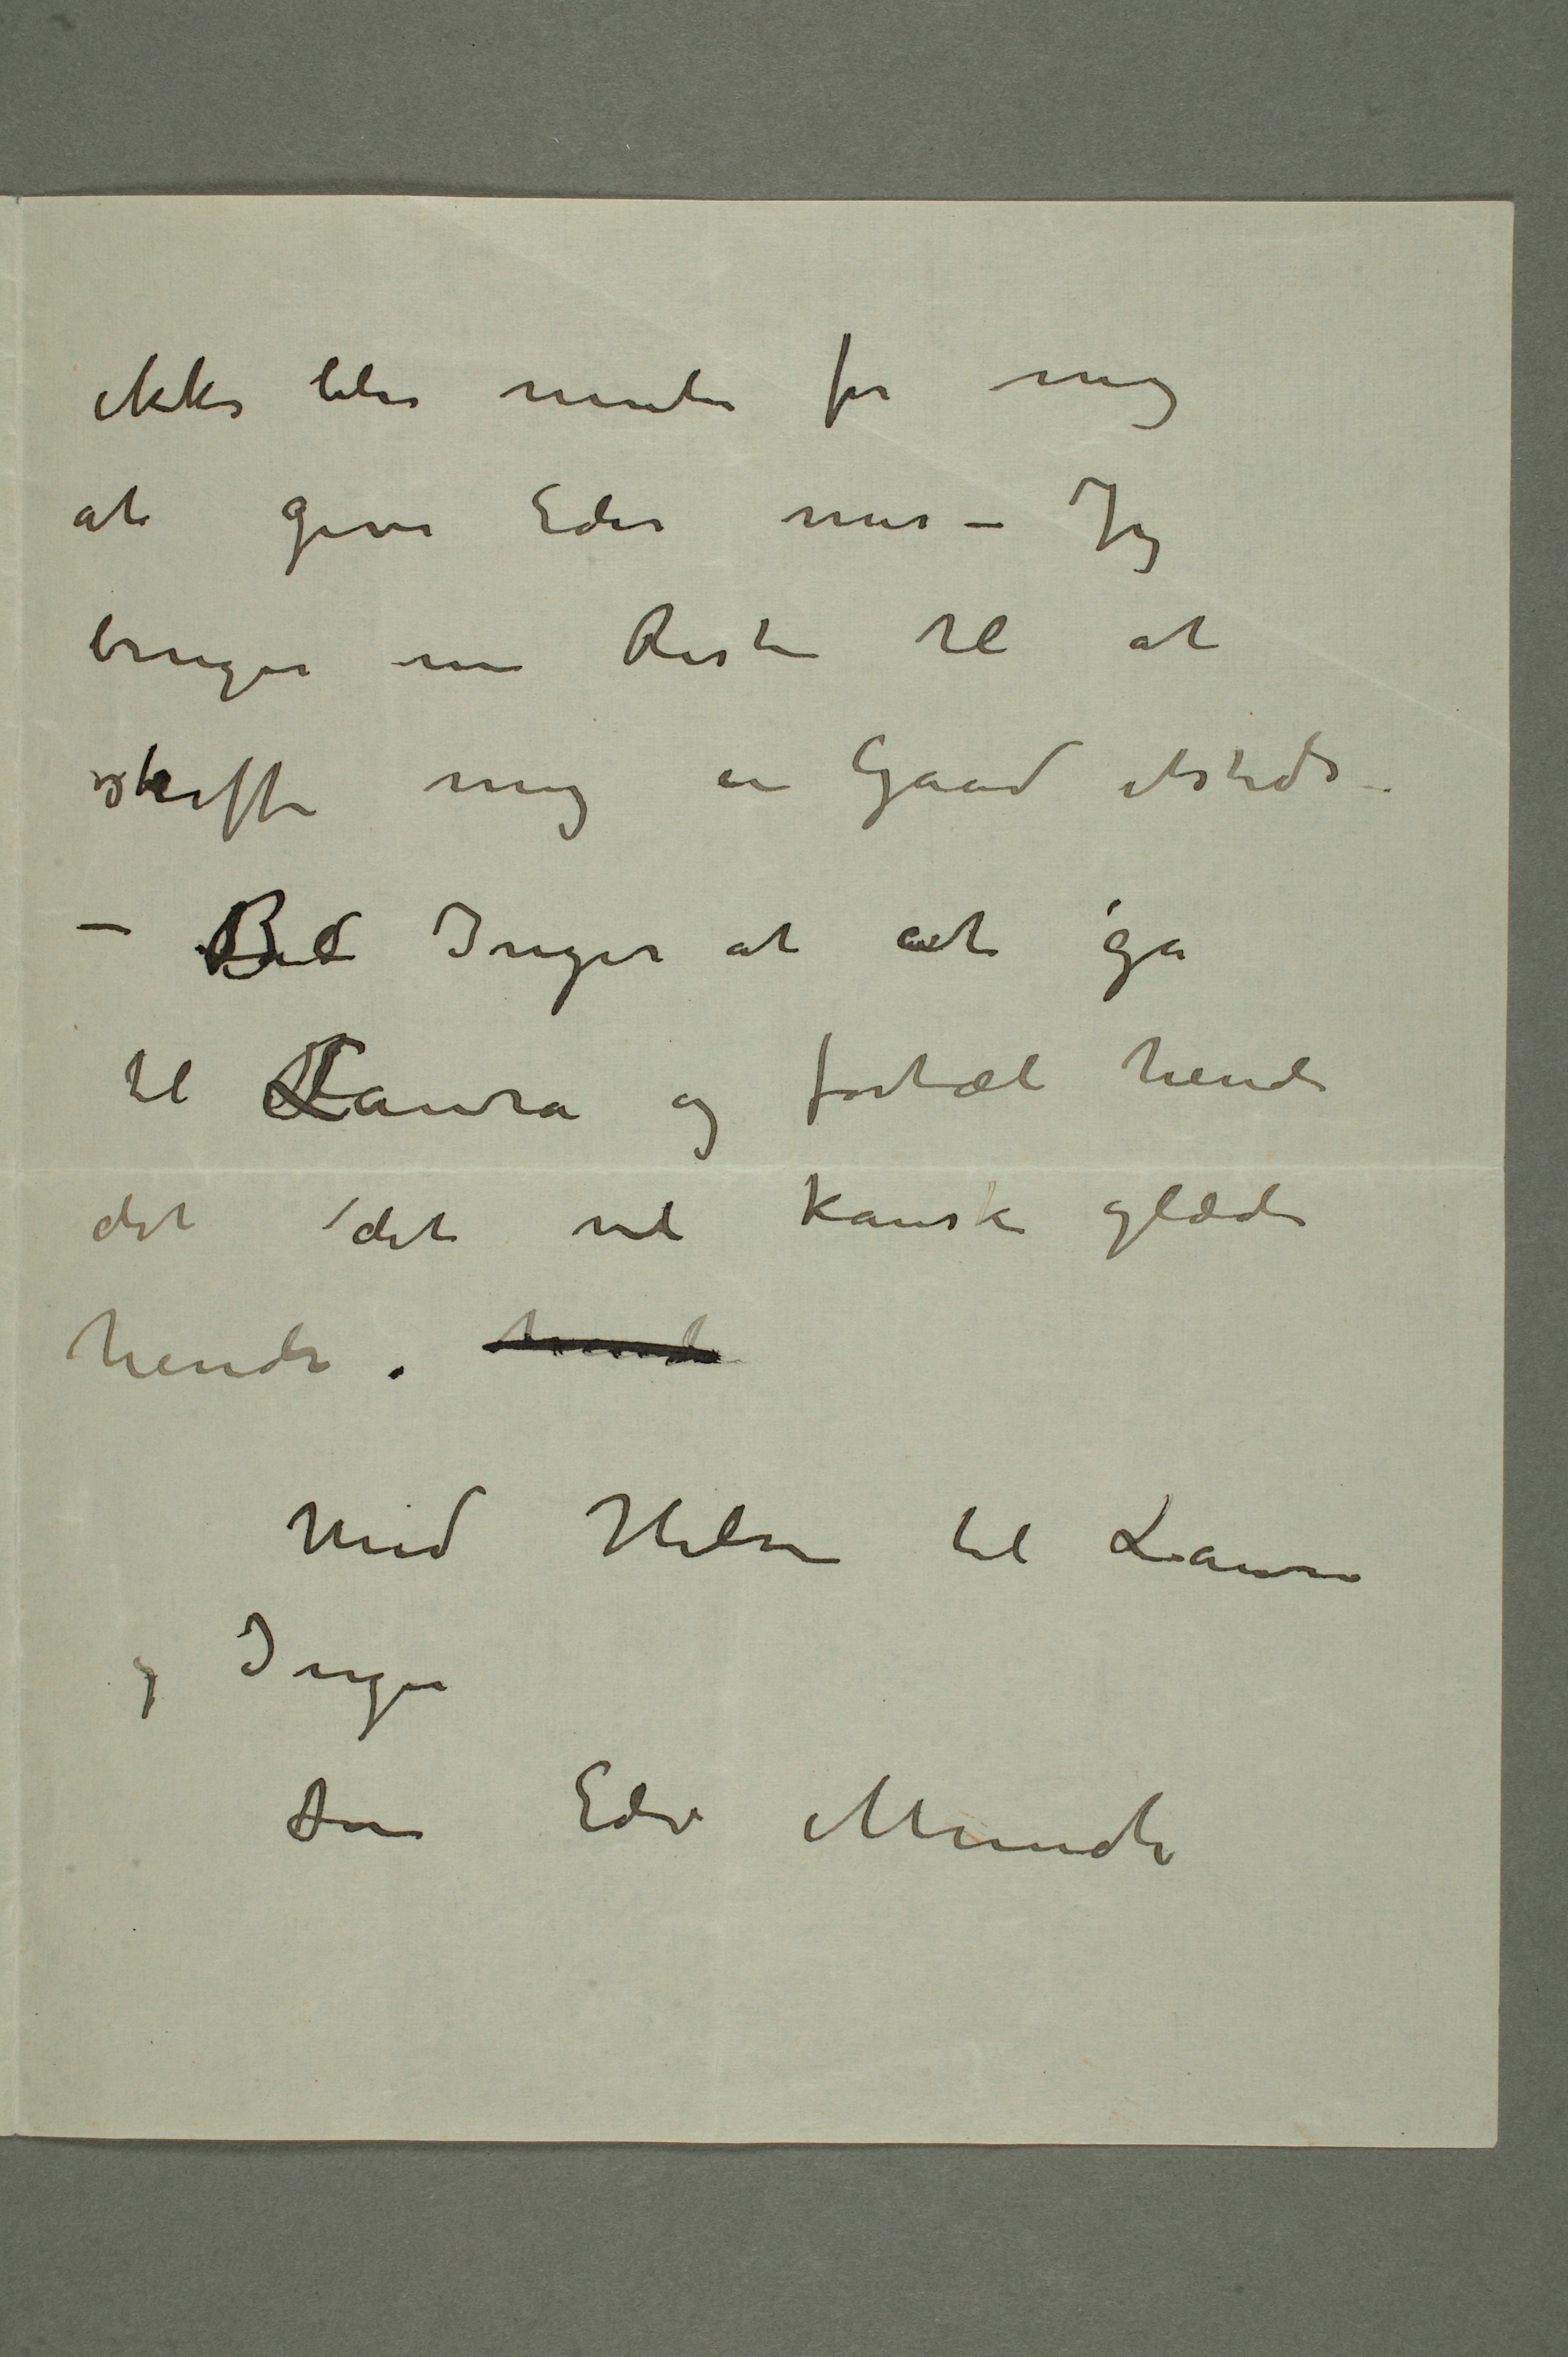 ikke blir mulig for mig
at give Eder mer – Jeg
bruger nu Resten til at
skaffe mig en Gaard etsteds –
– Bed Inger at at gå
til Laura og fortæl hende
det det vil kanske glæde
hende. hende
Med Hilsen til Laura
og Inger
Din Edv Munch